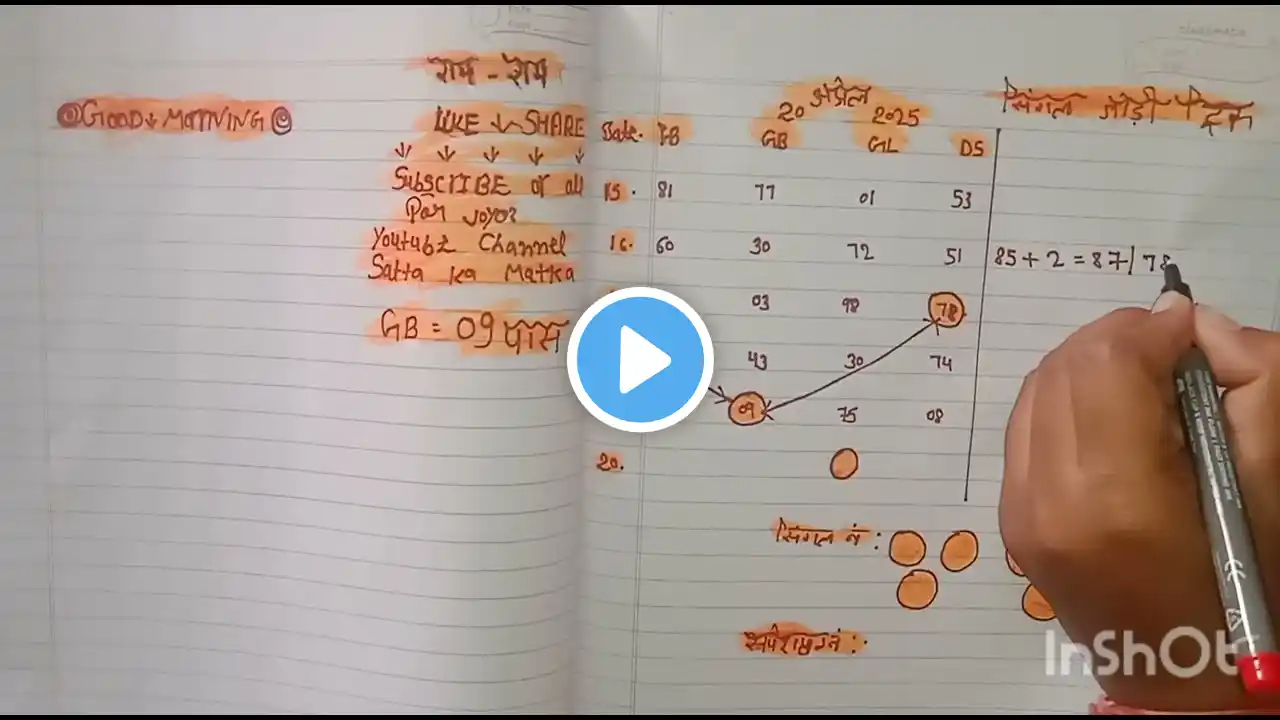 राम - राम
GOOD MORNING
LIKE SHARE
SUBSCRIBE or all
Par
Youtube Channel
Satta ka Matka
GB = 09 पास
अप्रेल
20 2025
सिंगल जोड़ी
Date. FB GB GL DS
15. 81 77 01 53
16. 60 30 72 51
85 + 2 = 87 | 78
03 98 78
43 30 74
09 75 08
20.
सिंगल नं :
InShOt